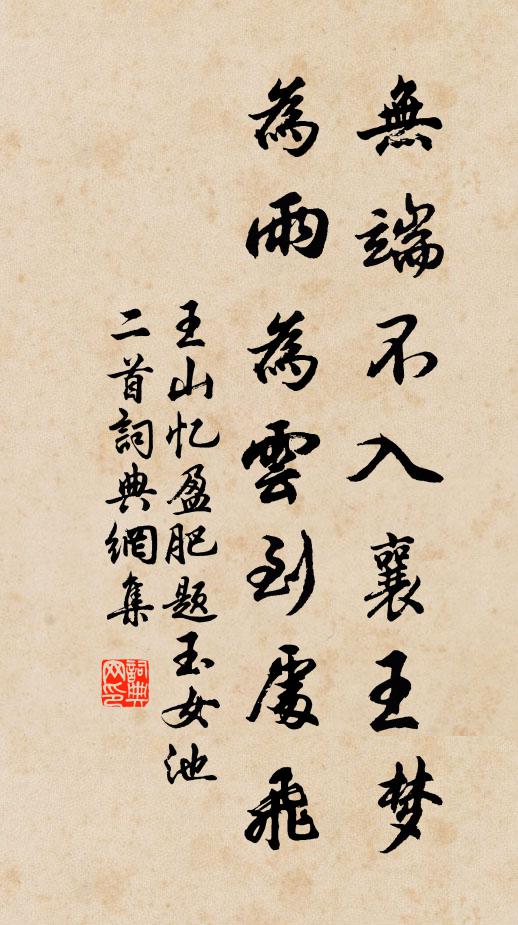 無端不入襄王梦
為雨為雲到處飛
王山忆盈肥题玉女池
二首詞典網集
詞典网印